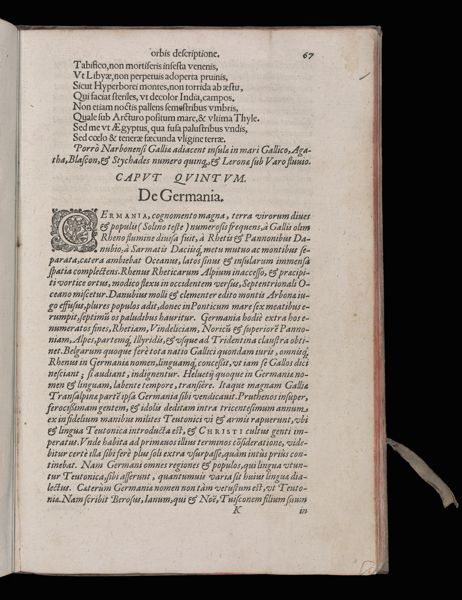 orbis descriptione. 67
Tabifico, non mortiferis infesta venenis,
Vt Libyæ, non perpetuis adoperta pruinis,
Sicut Hyperborei montes, non torrida ab æstu,
Qui faciat steriles, vt decolor India, campos.
Non etiam noctis pallens semestribus vmbris,
Quale sub Arcturo positum mare, & vltima Thyle.
Sed me vt Ægyptus, qua fusa palustribus vndis,
Sed cœlo & teneræ fæcunda vligine terræ.
Porrò Narbonensi Galliæ adiacent insulæ in mari Gallico, Aga-
tha, Blascon, & Stœchades numero quinq, & Lerone sub Varo fluuio.
CAPVT QVINTVM.
De Germania.
GERMANIA, cognomento magna, terra virorum diues
& populis (Solino teste) numerosis frequens, à Gallis olim
Rheno flumine diuisa fuit, à Rhetis & Pannonibus Da-
nubio, à Sarmatis Dacisq, metu mutuo ac montibus se-
parata, cætera ambiebat Oceanus, latos sinus & insularum immensa
spatia complectens. Rhenus Rheticarum Alpium inaccesso, & præcipi-
ti vortice ortus, modico flexu in occidentem versus, Septentrionali O-
ceano miscetur. Danubius molli & clementer edito montis Arbonæ iu-
go effusus, plures populos adit, donec in Ponticum mare sex meatibus e-
rumpit, septimũ os paludibus hauritur. Germania hodiè extra hos e-
numeratos fines, Rhetiam, Vindeliciam, Noricũ & superiorẽ Panno-
niam, Alpes, partemq, Illyridis, & vsque ad Tridentina claustra obti-
net. Belgarum quoque ferè tota natio Gallici quondam iuris, omnisq,
Rhenus in Germaniæ nomen, linguamq, concessit, vt iam se Gallos dici
nesciant; si audiant, indignentur. Heluetij quoque in Germaniæ no-
men & linguam, labente tempore, transière. Itaque magnam Galliæ
Transalpinæ partẽ ipsa Germania sibi vendicauit. Pruthenos insuper,
ferocissimam gentem, & idolis deditam intra tricentesimum annum,
ex infidelium manibus milites Teutonici vi & armis rapuerunt, vbi
& lingua Teutonica introducta est, & CHRISTI cultus genti im-
peratus. Vnde habita ad primæuos illius terminos cõsideratione, vide-
bitur certè illa sibi ferè plus soli extra vsurpasse, quàm intùs priùs con-
tinebat. Nam Germani omnes regiones & populos, qui lingua vtun-
tur Teutonica, sibi asserunt, quantumuis varia sit huius lingua dia-
lectus. Cæterùm Germania nomen non tàm vetustum est, vt Teuto-
nia. Nam scribit Berosus, Ianum, qui & Noë, Tuisconem filium suum
K in